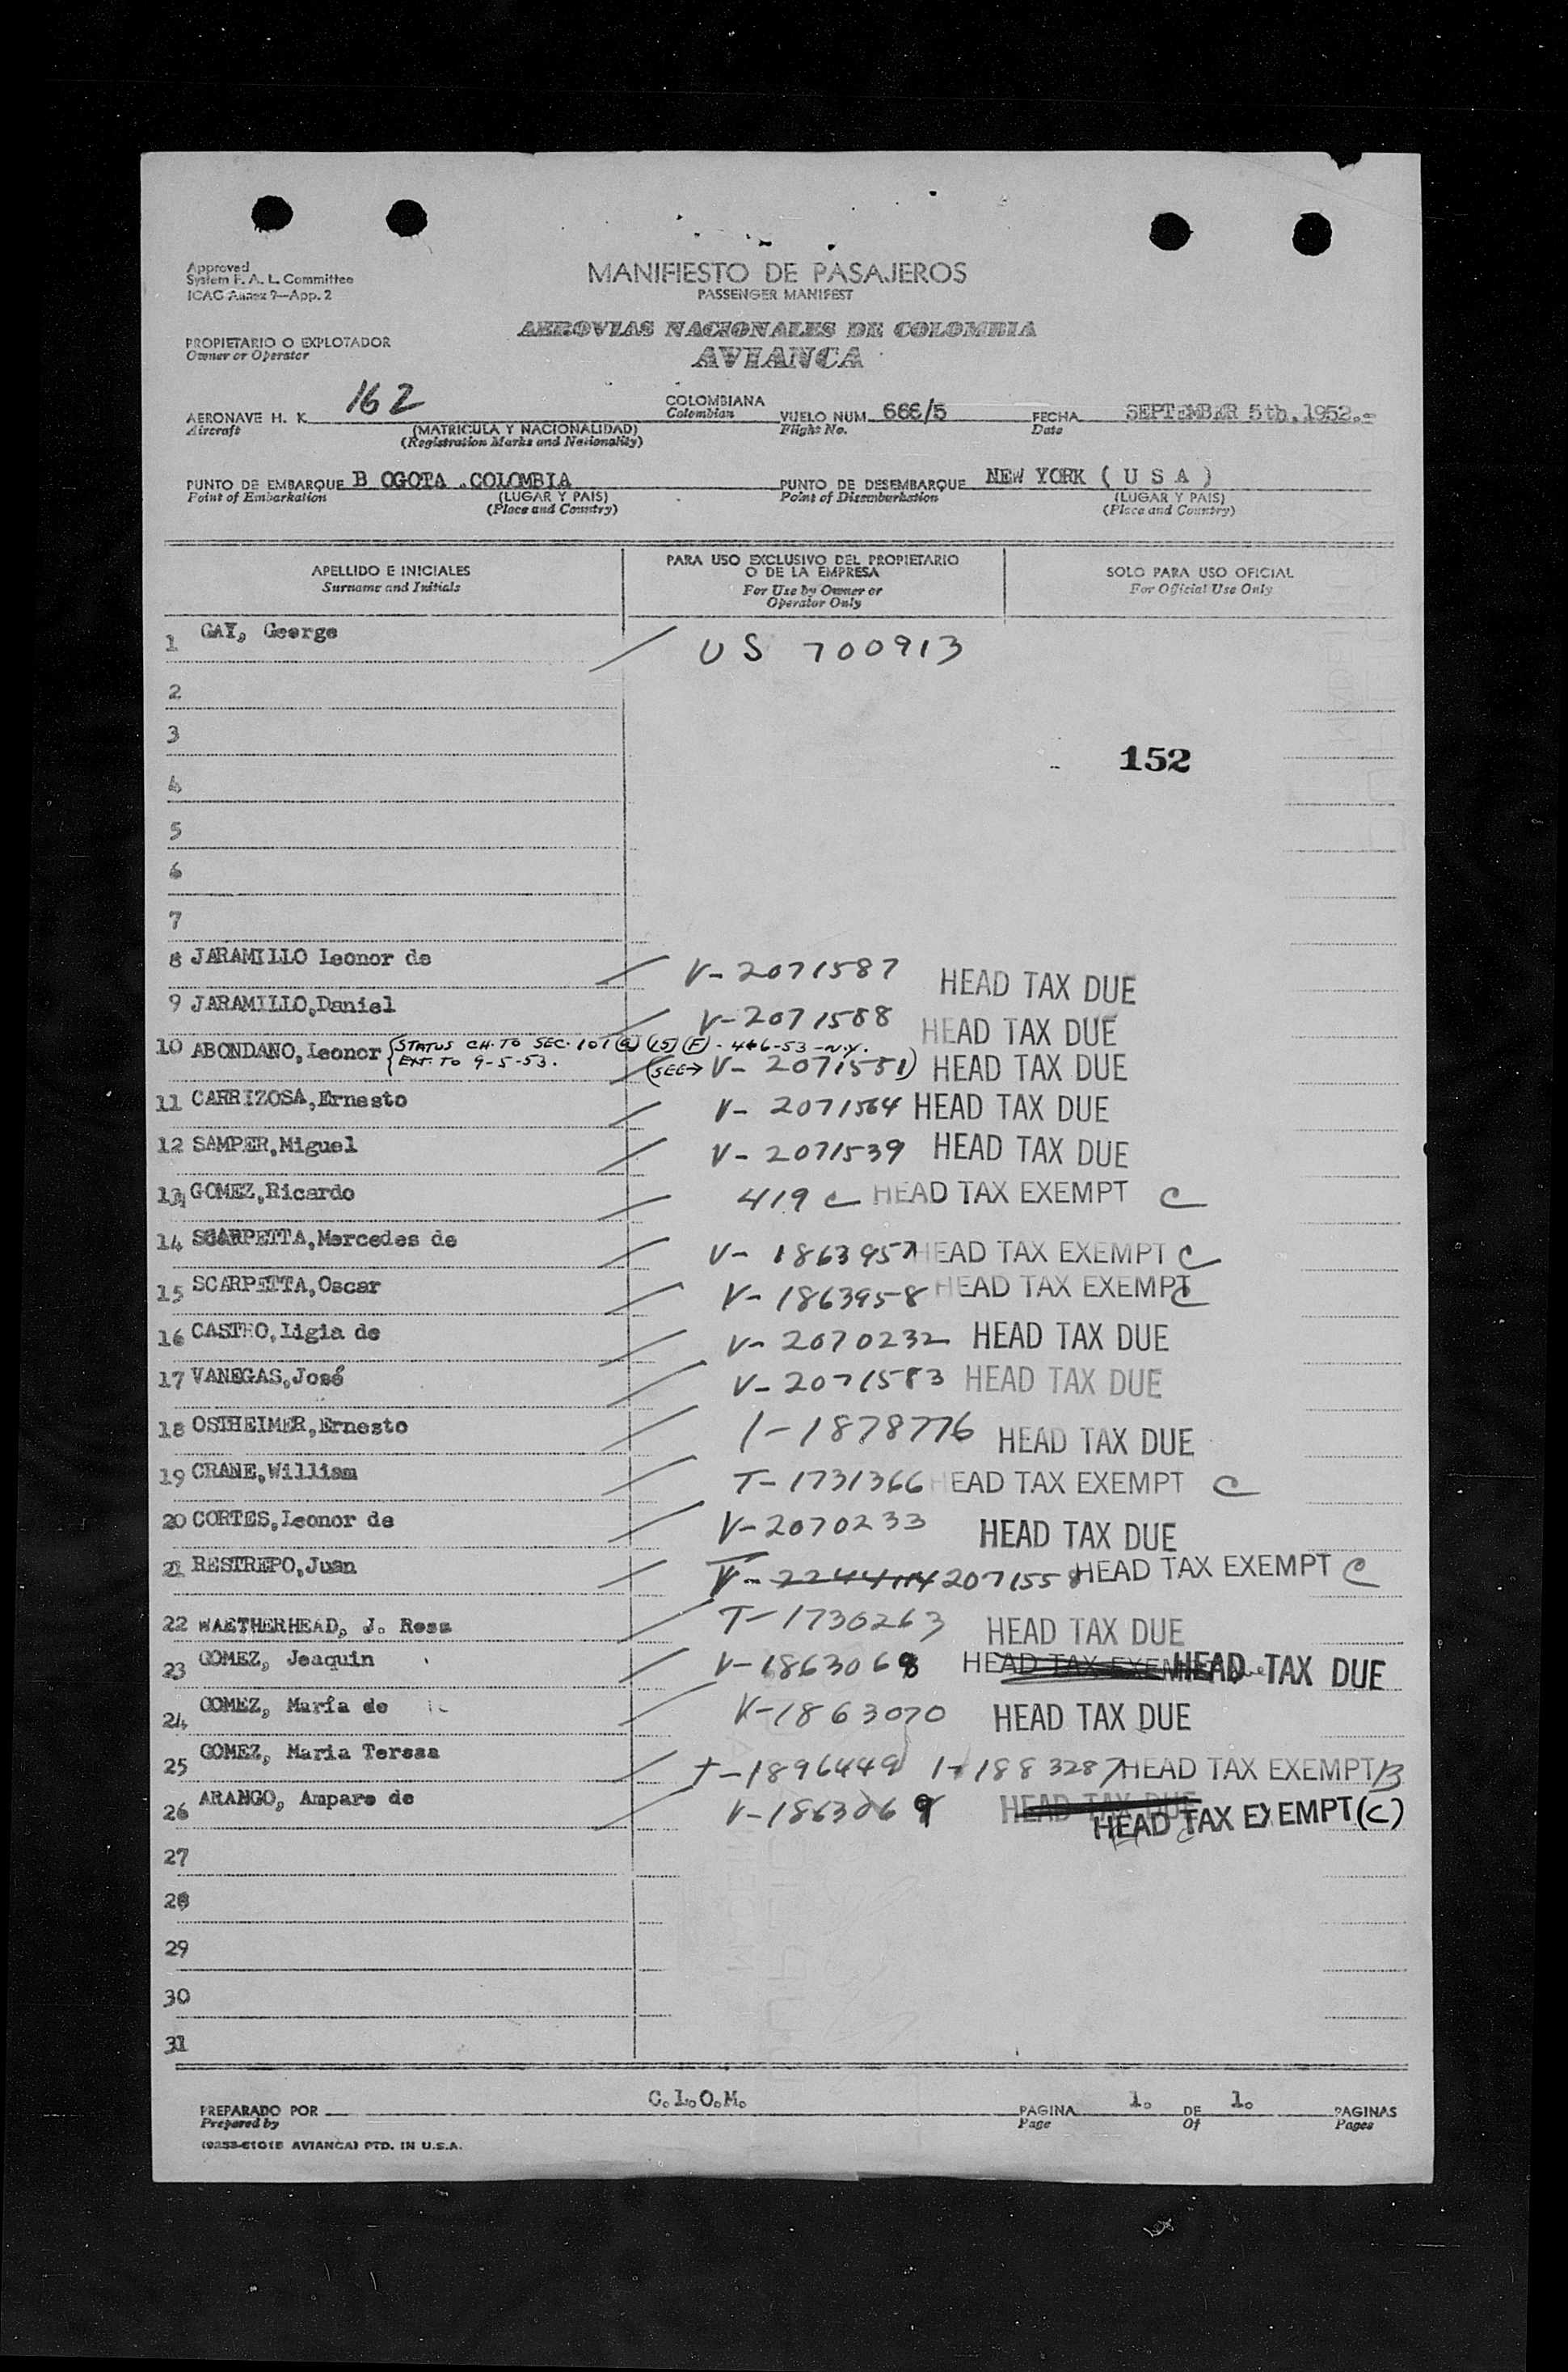 Approved
System F. A. L. Committee
ICAO Annex 9—App. 2
MANIFIESTO DE PASAJEROS
PASSENGER MANIFEST
AEROVIAS NACIONALES DE COLOMBIA
AVIANCA
PROPIETARIO O EXPLOTADOR
Owner or Operator
AERONAVE H. K. 162 COLOMBIANA VUELO NUM. 666/5 FECHA SEPTEMBER 5th.1952.-
Aircraft (MATRICULA Y NACIONALIDAD) Colombian Flight No. Date
(Registration Marks and Nationality)
PUNTO DE EMBARQUE B OGOTA .COLOMBIA PUNTO DE DESEMBARQUE NEW YORK ( U S A )
Point of Embarkation (LUGAR Y PAIS) Point of Disembarkation (LUGAR Y PAIS)
(Place and Country) (Place and Country)
APELLIDO E INICIALES
Surname and Initials
PARA USO EXCLUSIVO DEL PROPIETARIO
O DE LA EMPRESA
For Use by Owner or
Operator Only
SOLO PARA USO OFICIAL
For Official Use Only
1 GAY, George US 700913
2
3
152
4
5
6
7
8 JARAMILLO Leonor de V-2071587 HEAD TAX DUE
9 JARAMILLO,Daniel V-2071588 HEAD TAX DUE
10 ABONDANO,Leonor {STATUS CH. TO SEC. 101 (a) (15) (F) - 4-6-53-N.Y.
EXT. TO 9-5-53. (SEE→ V-2071551) HEAD TAX DUE
11 CARRIZOSA,Ernesto V-2071564 HEAD TAX DUE
12 SAMPER,Miguel V-2071539 HEAD TAX DUE
13 GOMEZ,Ricardo 419 C HEAD TAX EXEMPT C
14 SCARPETTA,Mercedes de V-1863957 HEAD TAX EXEMPT C
15 SCARPETTA,Oscar V-1863958 HEAD TAX EXEMPT C
16 CASTRO,Ligia de V-2070232 HEAD TAX DUE
17 VANEGAS,José V-2071583 HEAD TAX DUE
18 OSTHEIMER,Ernesto 1-1878776 HEAD TAX DUE
19 CRANE,William T-1731366 HEAD TAX EXEMPT C
20 CORTES,Leonor de V-2070233 HEAD TAX DUE
21 RESTREPO,Juan V- 2071558 HEAD TAX EXEMPT C
22 WAETHERHEAD, J. Ross T-1730263 HEAD TAX DUE
23 GOMEZ, Joaquin V-1863068 HEAD TAX EXEMPT HEAD TAX DUE
24 GOMEZ, María de V-1863070 HEAD TAX DUE
25 GOMEZ, Maria Teresa T-1896449 1-1883287 HEAD TAX EXEMPT B
26 ARANGO, Amparo de V-1863069 HEAD TAX DUE
HEAD TAX EXEMPT (C)
27
28
29
30
31
PREPARADO POR C.L.O.M. PAGINA 1. DE 1. PAGINAS
Prepared by Page Of Pages
AVIANCA) PTD. IN U.S.A.